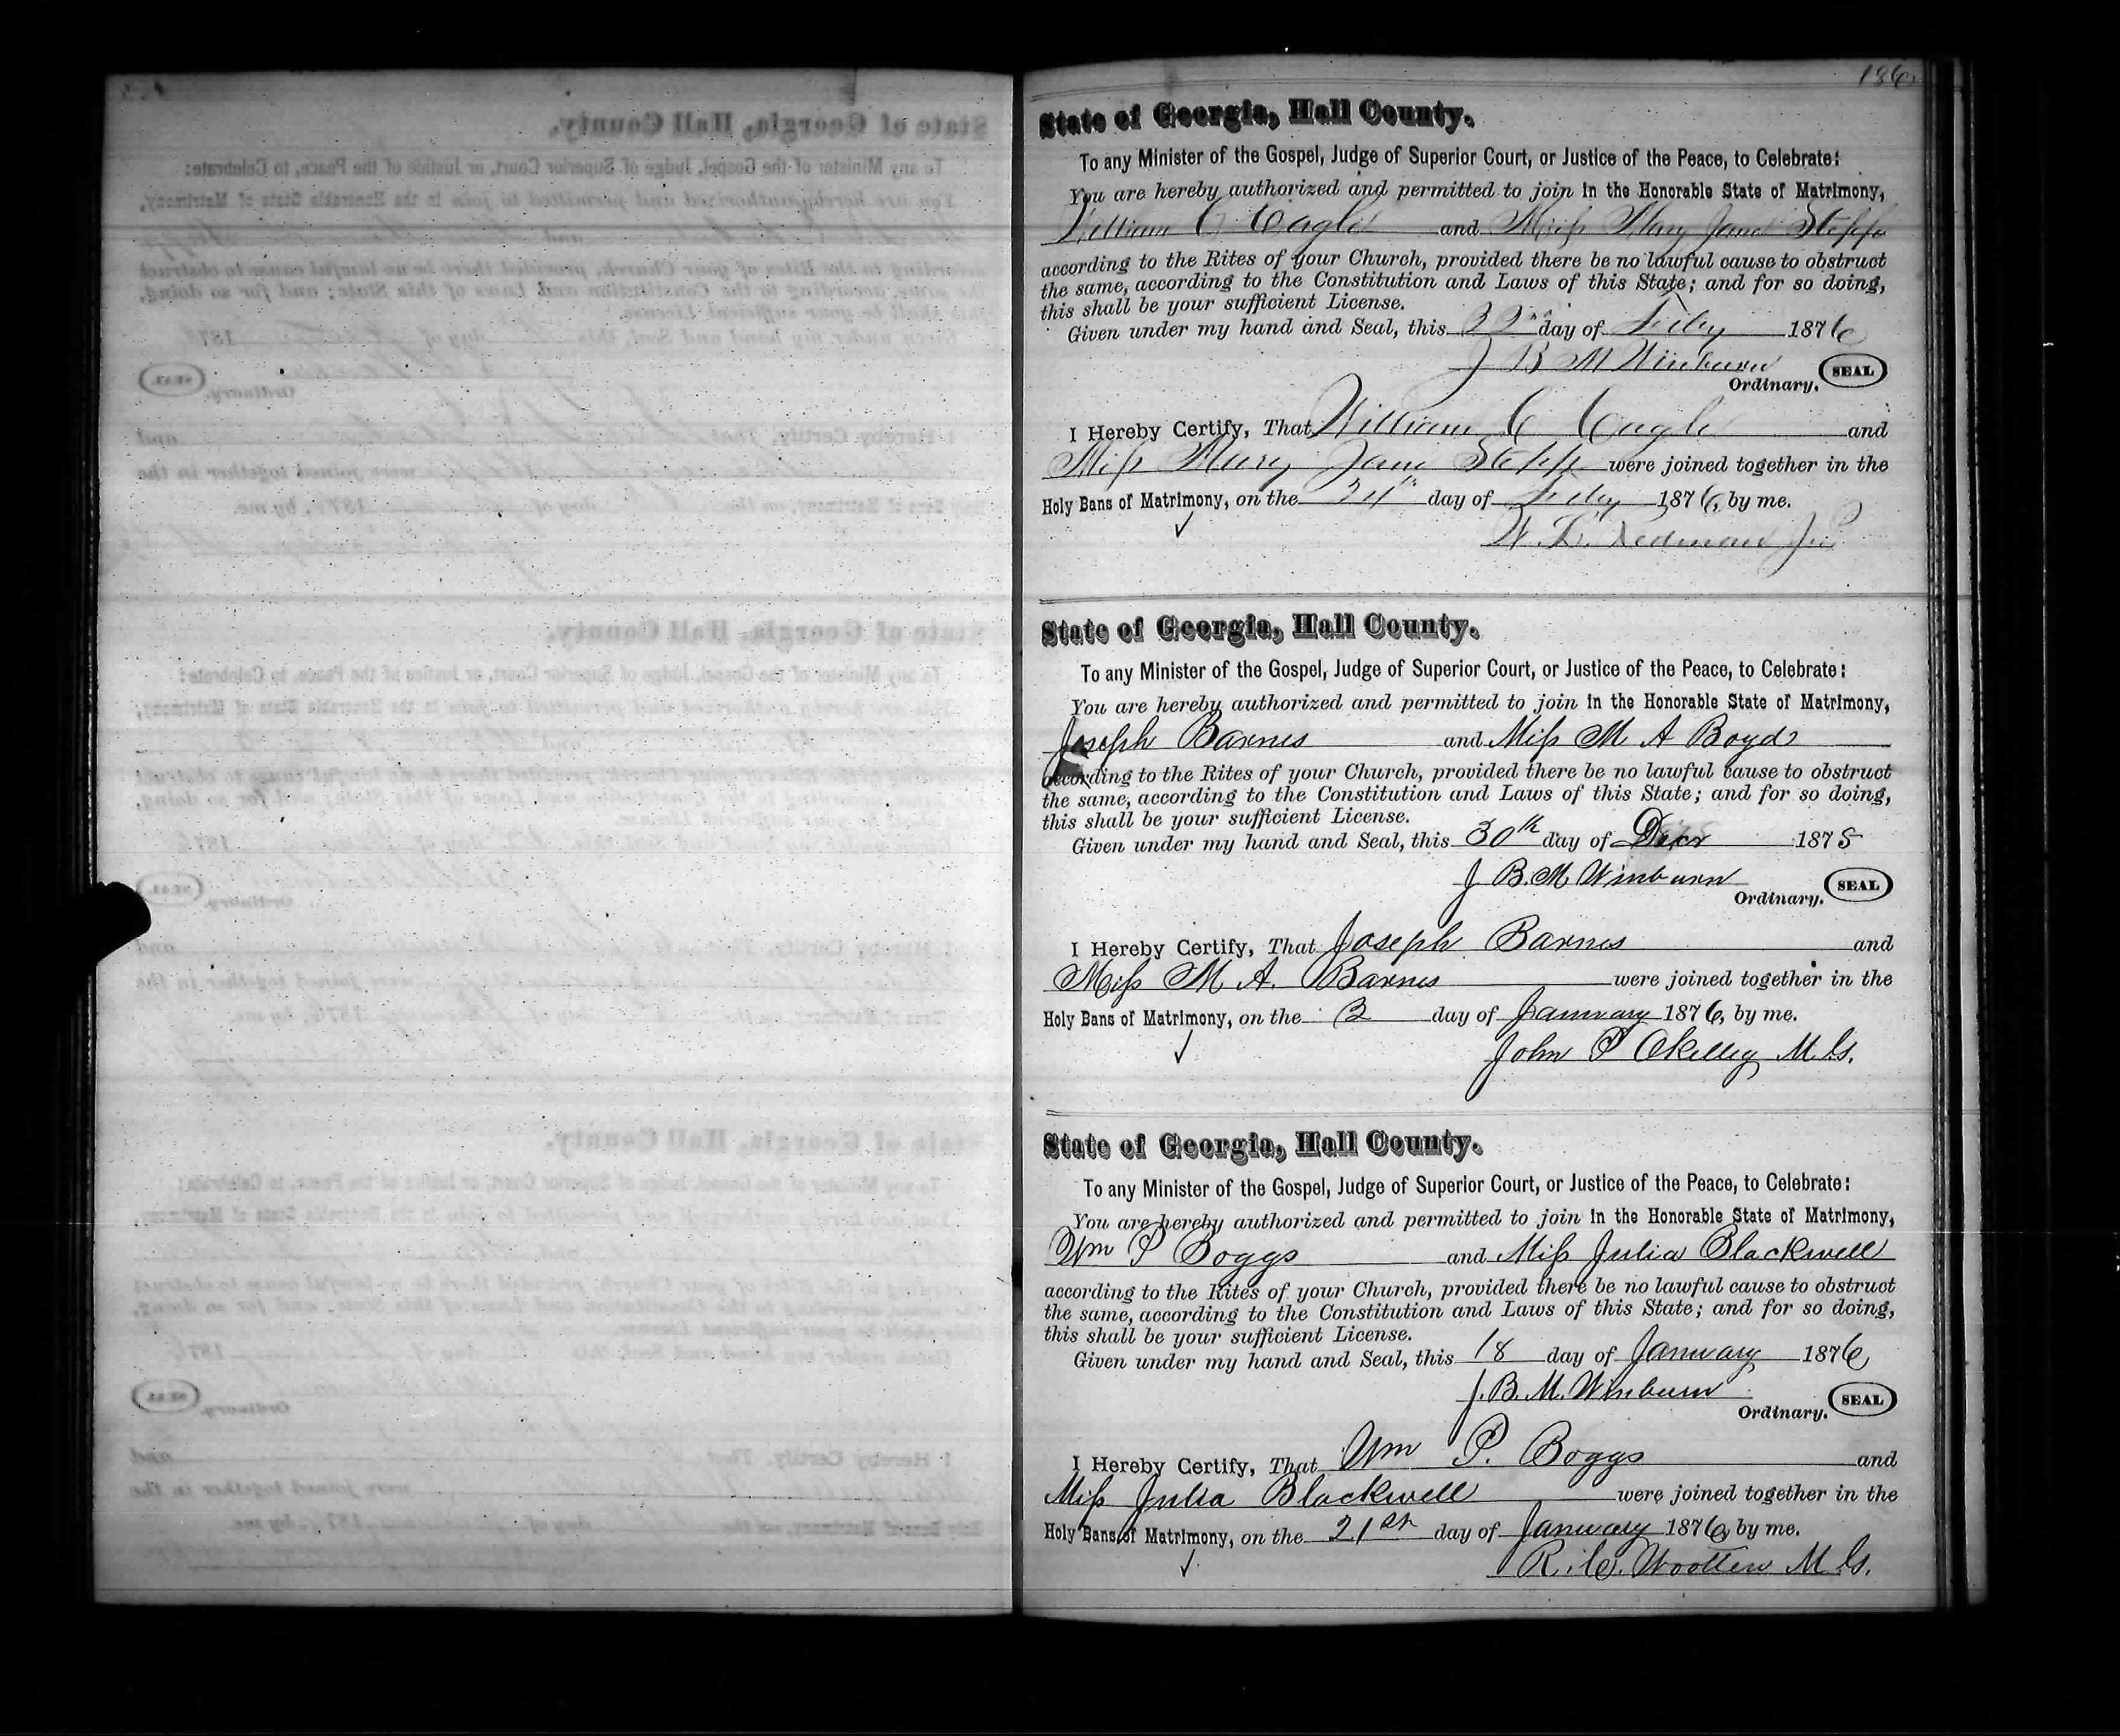 186
State of Georgia, Hall County.
To any Minister of the Gospel, Judge of Superior Court, or Justice of the Peace, to Celebrate:
You are hereby authorized and permitted to join in the Honorable State of Matrimony,
William C Cagle and Miss Mary Jane Stepp
according to the Rites of your Church, provided there be no lawful cause to obstruct
the same, according to the Constitution and Laws of this State; and for so doing,
this shall be your sufficient License.
Given under my hand and Seal, this 22nd day of Feby 1876
J B M Winburn
Ordinary. SEAL
I Hereby Certify, That William C Cagle and
Miss Mary Jane Stepp were joined together in the
Holy Bans of Matrimony, on the 24th day of Feby 1876, by me.
W. L.
State of Georgia, Hall County.
To any Minister of the Gospel, Judge of Superior Court, or Justice of the Peace, to Celebrate:
You are hereby authorized and permitted to join in the Honorable State of Matrimony,
Joseph Barnes and Miss M A Boyd
according to the Rites of your Church, provided there be no lawful cause to obstruct
the same, according to the Constitution and Laws of this State; and for so doing,
this shall be your sufficient License.
Given under my hand and Seal, this 30th day of Decr 1875
J B. M. Winburn
Ordinary. SEAL
I Hereby Certify, That Joseph Barnes and
Miss M A. Barnes were joined together in the
Holy Bans of Matrimony, on the 3 day of January 1876, by me.
John P Okelley M. G.
State of Georgia, Hall County.
To any Minister of the Gospel, Judge of Superior Court, or Justice of the Peace, to Celebrate:
You are hereby authorized and permitted to join in the Honorable State of Matrimony,
Wm P Boggs and Miss Julia Blackwell
according to the Rites of your Church, provided there be no lawful cause to obstruct
the same, according to the Constitution and Laws of this State; and for so doing,
this shall be your sufficient License.
Given under my hand and Seal, this 18 day of January 1876
J. B. M. Winburn
Ordinary. SEAL
I Hereby Certify, That Wm P. Boggs and
Miss Julia Blackwell were joined together in the
Holy Bans of Matrimony, on the 21st day of January 1876, by me.
Wootten M. G.